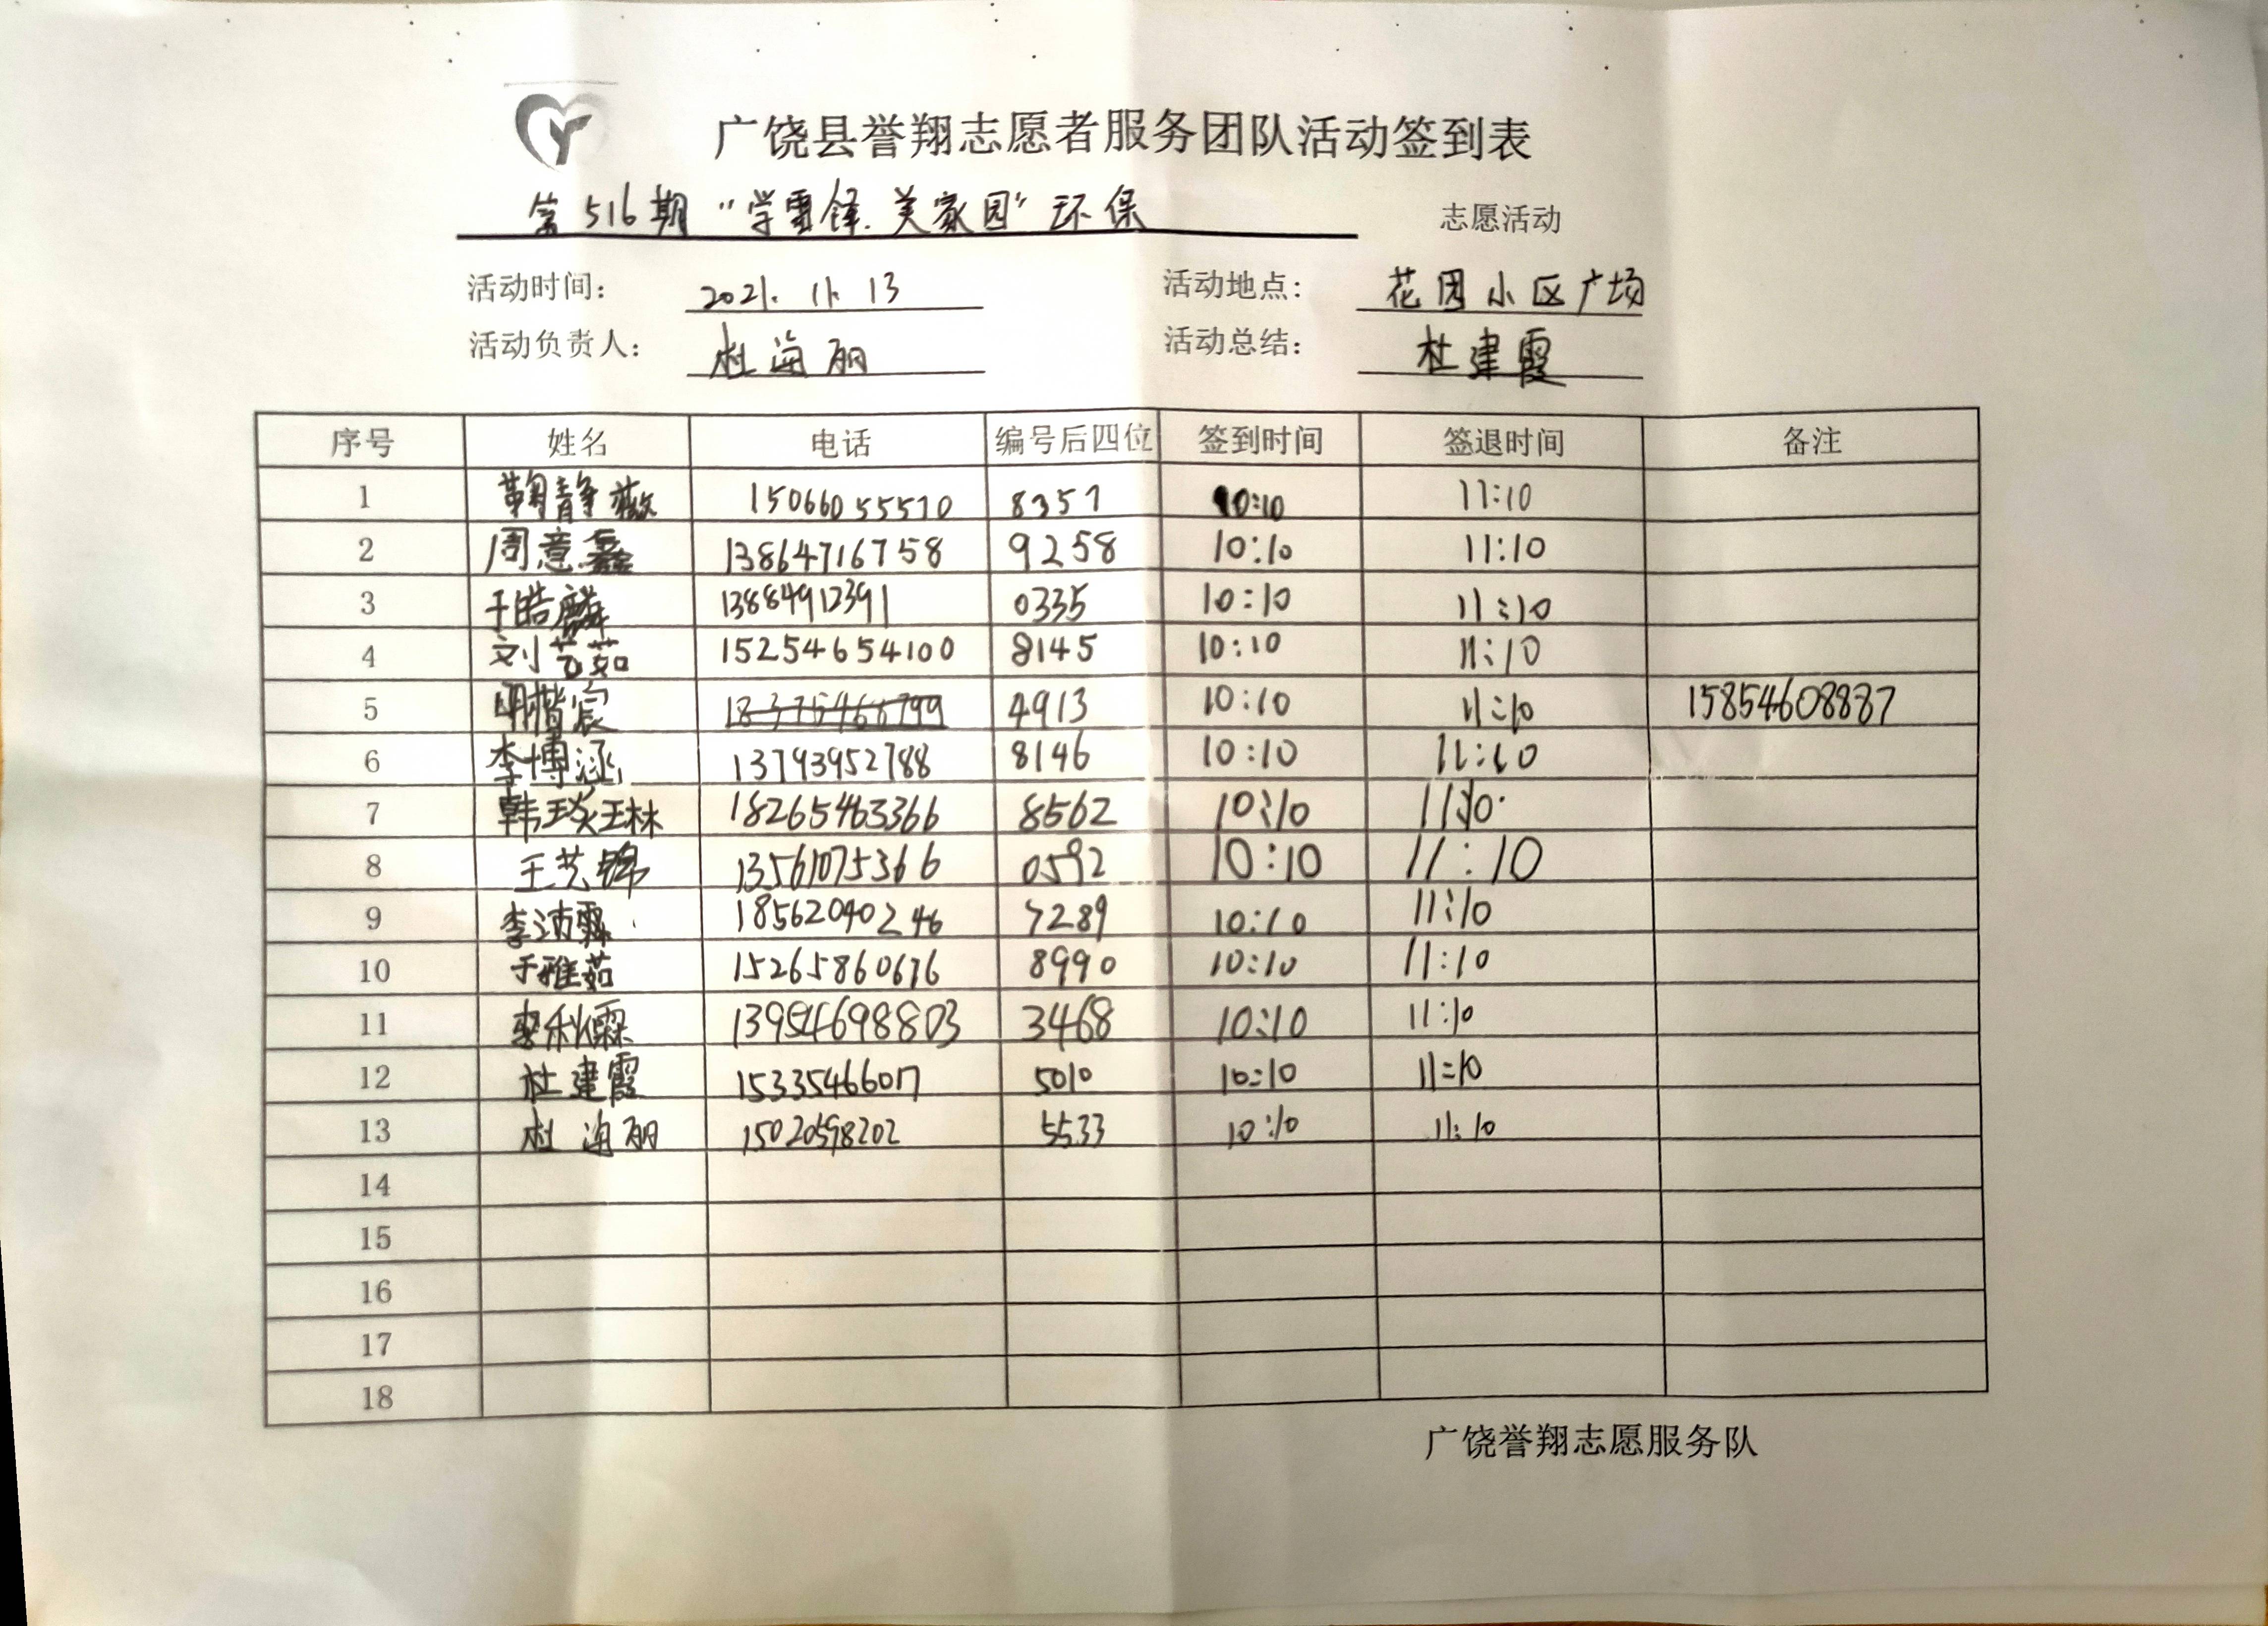 广饶县誉翔志愿者服务团队活动签到表
第516期“学雷锋.美家园”环保 志愿活动
活动时间： 2021.11.13 活动地点： 花园小区广场
活动负责人： 杜海丽 活动总结： 杜建霞
序号 姓名 电话 编号后四位 签到时间 签退时间 备注
1 鞠静薇 15066055570 8357 10:10 11:10
2 周意鑫 13864716758 9258 10:10 11:10
3 于皓麟 13884912391 0335 10:10 11:10
4 刘芸茹 15254654100 8145 10:10 11:10
5 明楷宸 4913 10:10 11:10 15854608887
6 李博涵 13793952788 8146 10:10 11:10
7 韩琰琳 18265463366 8562 10:10 11:10
8 王艺锦 13561075366 0592 10:10 11:10
9 李沛霖 18562040246 7289 10:10 11:10
10 于雅茹 15265860676 8990 10:10 11:10
11 李秋霖 13954698803 3468 10:10 11:10
12 杜建霞 15335466017 5010 10:10 11:10
13 杜海丽 15020598202 5533 10:10 11:10
14
15
16
17
18
广饶誉翔志愿服务队